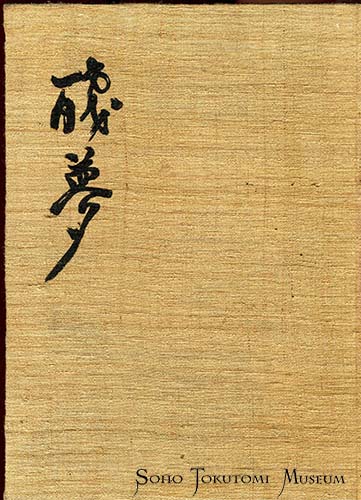 残夢
SOHO TOKUTOMI MUSEUM